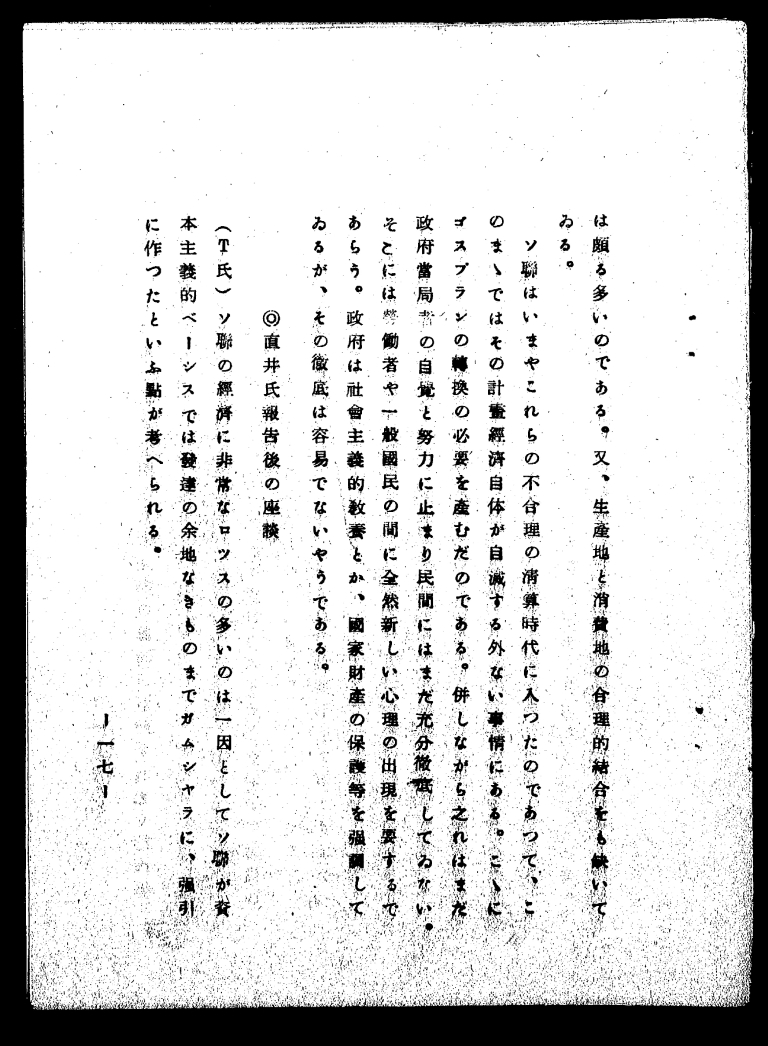 は頗る多いのである。又、生産地と消費地の合理的結合をも缺いて
ゐる。
ソ聯はいまやこれらの不合理の清算時代に入つたのであつて、こ
のまゝではその計畫經濟自体が自滅する外ない事情にある。こゝに
ゴスプランの轉換の必要を産むだのである。併しながら之れはまだ
政府當局者の自覺と努力に止まり民間にはまだ充分徹底してゐない。
そこには勞働者や一般國民の間に全然新しい心理の出現を要するで
あらう。政府は社會主義的教養とか、國家財産の保護等を强調して
ゐるが、その徹底は容易でないやうである。
◎直井氏報告後の座談
(T氏)ソ聯の經濟に非常なロツスの多いのは一因としてソ聯が資
本主義的ベーシスでは發達の余地なきものまでガムシヤラに、强引
に作つたといふ點が考へられる。
—一七—